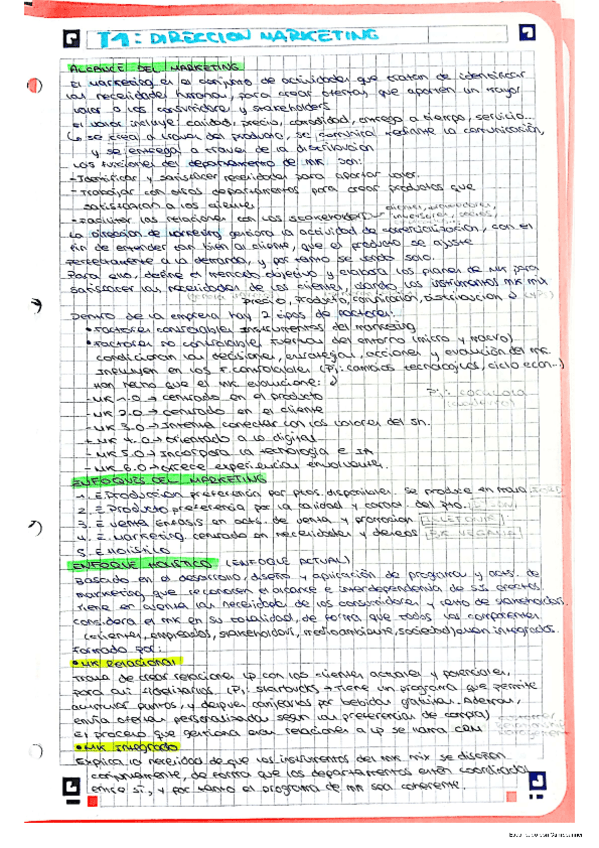 T1: DIRECCION MARKETING
ALCANCE DEL MARKETING
El marketing es el conjunto de actividades que tratan de identificar
las necesidades humanas, para crear ofertas que aporten un mayor
valor a los consumidores y stakeholders
El valor incluye calidad, precio, comodidad, entrega a tiempo, servicio...
↳ se crea a traves del producto, se comunica mediante la comunicación,
y se entrega a traves de la distribución
Las funciones del departamento de MK son:
- Identificar y satisfacer necesidades para aportar valor.
- Trabajar con otros departamentos para crear productos que
satisfagan a los clientes
- Facilitar las relaciones con los stakeholders
La direccion de marketing gestiona la actividad de comercialización, con el
fin de entender tan bien al cliente, que el producto se ajuste
perfectamente a la demanda, y por tanto se venda solo.
Para ello, define el mercado objetivo y elabora los planes de MK para
satisfacer las necesidades de los clientes, usando los instrumentos MK mix
Precio, producto, comunicación, distribucion
Dentro de la empresa hay 2 tipos de factores:
• Factores controlables Instrumentos del marketing
• Factores no controlables Fuerzas del entorno (micro y macro)
condicionan las decisiones, estrategias, acciones y evolución del MK.
Influyen en los F. controlables (Pj: cambios tecnologicos, ciclo econ...)
Han hecho que el MK evolucione:
- MK 1.0 → centrado en el producto
- MK 2.0 → centrado en el cliente
- MK 3.0 → Intenta conectar con los valores del
- MK 4.0 → orientado a lo digital
- MK 5.0 → Incorpora la tecnología e IA
- MK 6.0 → ofrece experiencias envolventes.
ENFOQUES DEL MARKETING
1. E. Produccion preferencia por ptos. disponibles, se produce en masa
2. E. Producto preferencia por la calidad y caract. del pto.
3. E. Venta Énfasis en acts. de venta y promoción
4. E. Marketing centrado en necesidades y deseos
5. E. Holistico
ENFOQUE HOLISTICO (ENFOQUE ACTUAL)
Basado en el desarrollo, diseño y aplicación de programas y acts. de
marketing que reconocen el alcance e interdependencia de sus efectos.
Tiene en cuenta las necesidades de los consumidores y resto de stakeholders.
Considera el MK en su totalidad, de forma que todos los componentes
(clientes, empleados, stakeholders, medioambiente, sociedad) estén integrados.
Formado por:
• MK Relacional
Trata de crear relaciones LP con los clientes actuales y potenciales,
para así fidelizarlos. (Pj: Starbucks → Tiene un programa que permite
acumular puntos, y después canjearlos por bebidas gratuitas. Además,
envía ofertas personalizadas según las preferencias de compra)
El proceso que gestiona esas relaciones a LP se llama CRM
• MK Integrado
Explica la necesidad de que los instrumentos del MK mix se diseñen
conjuntamente, de forma que los departamentos estén coordinados
entre sí, y por tanto el programa de MK sea coherente.